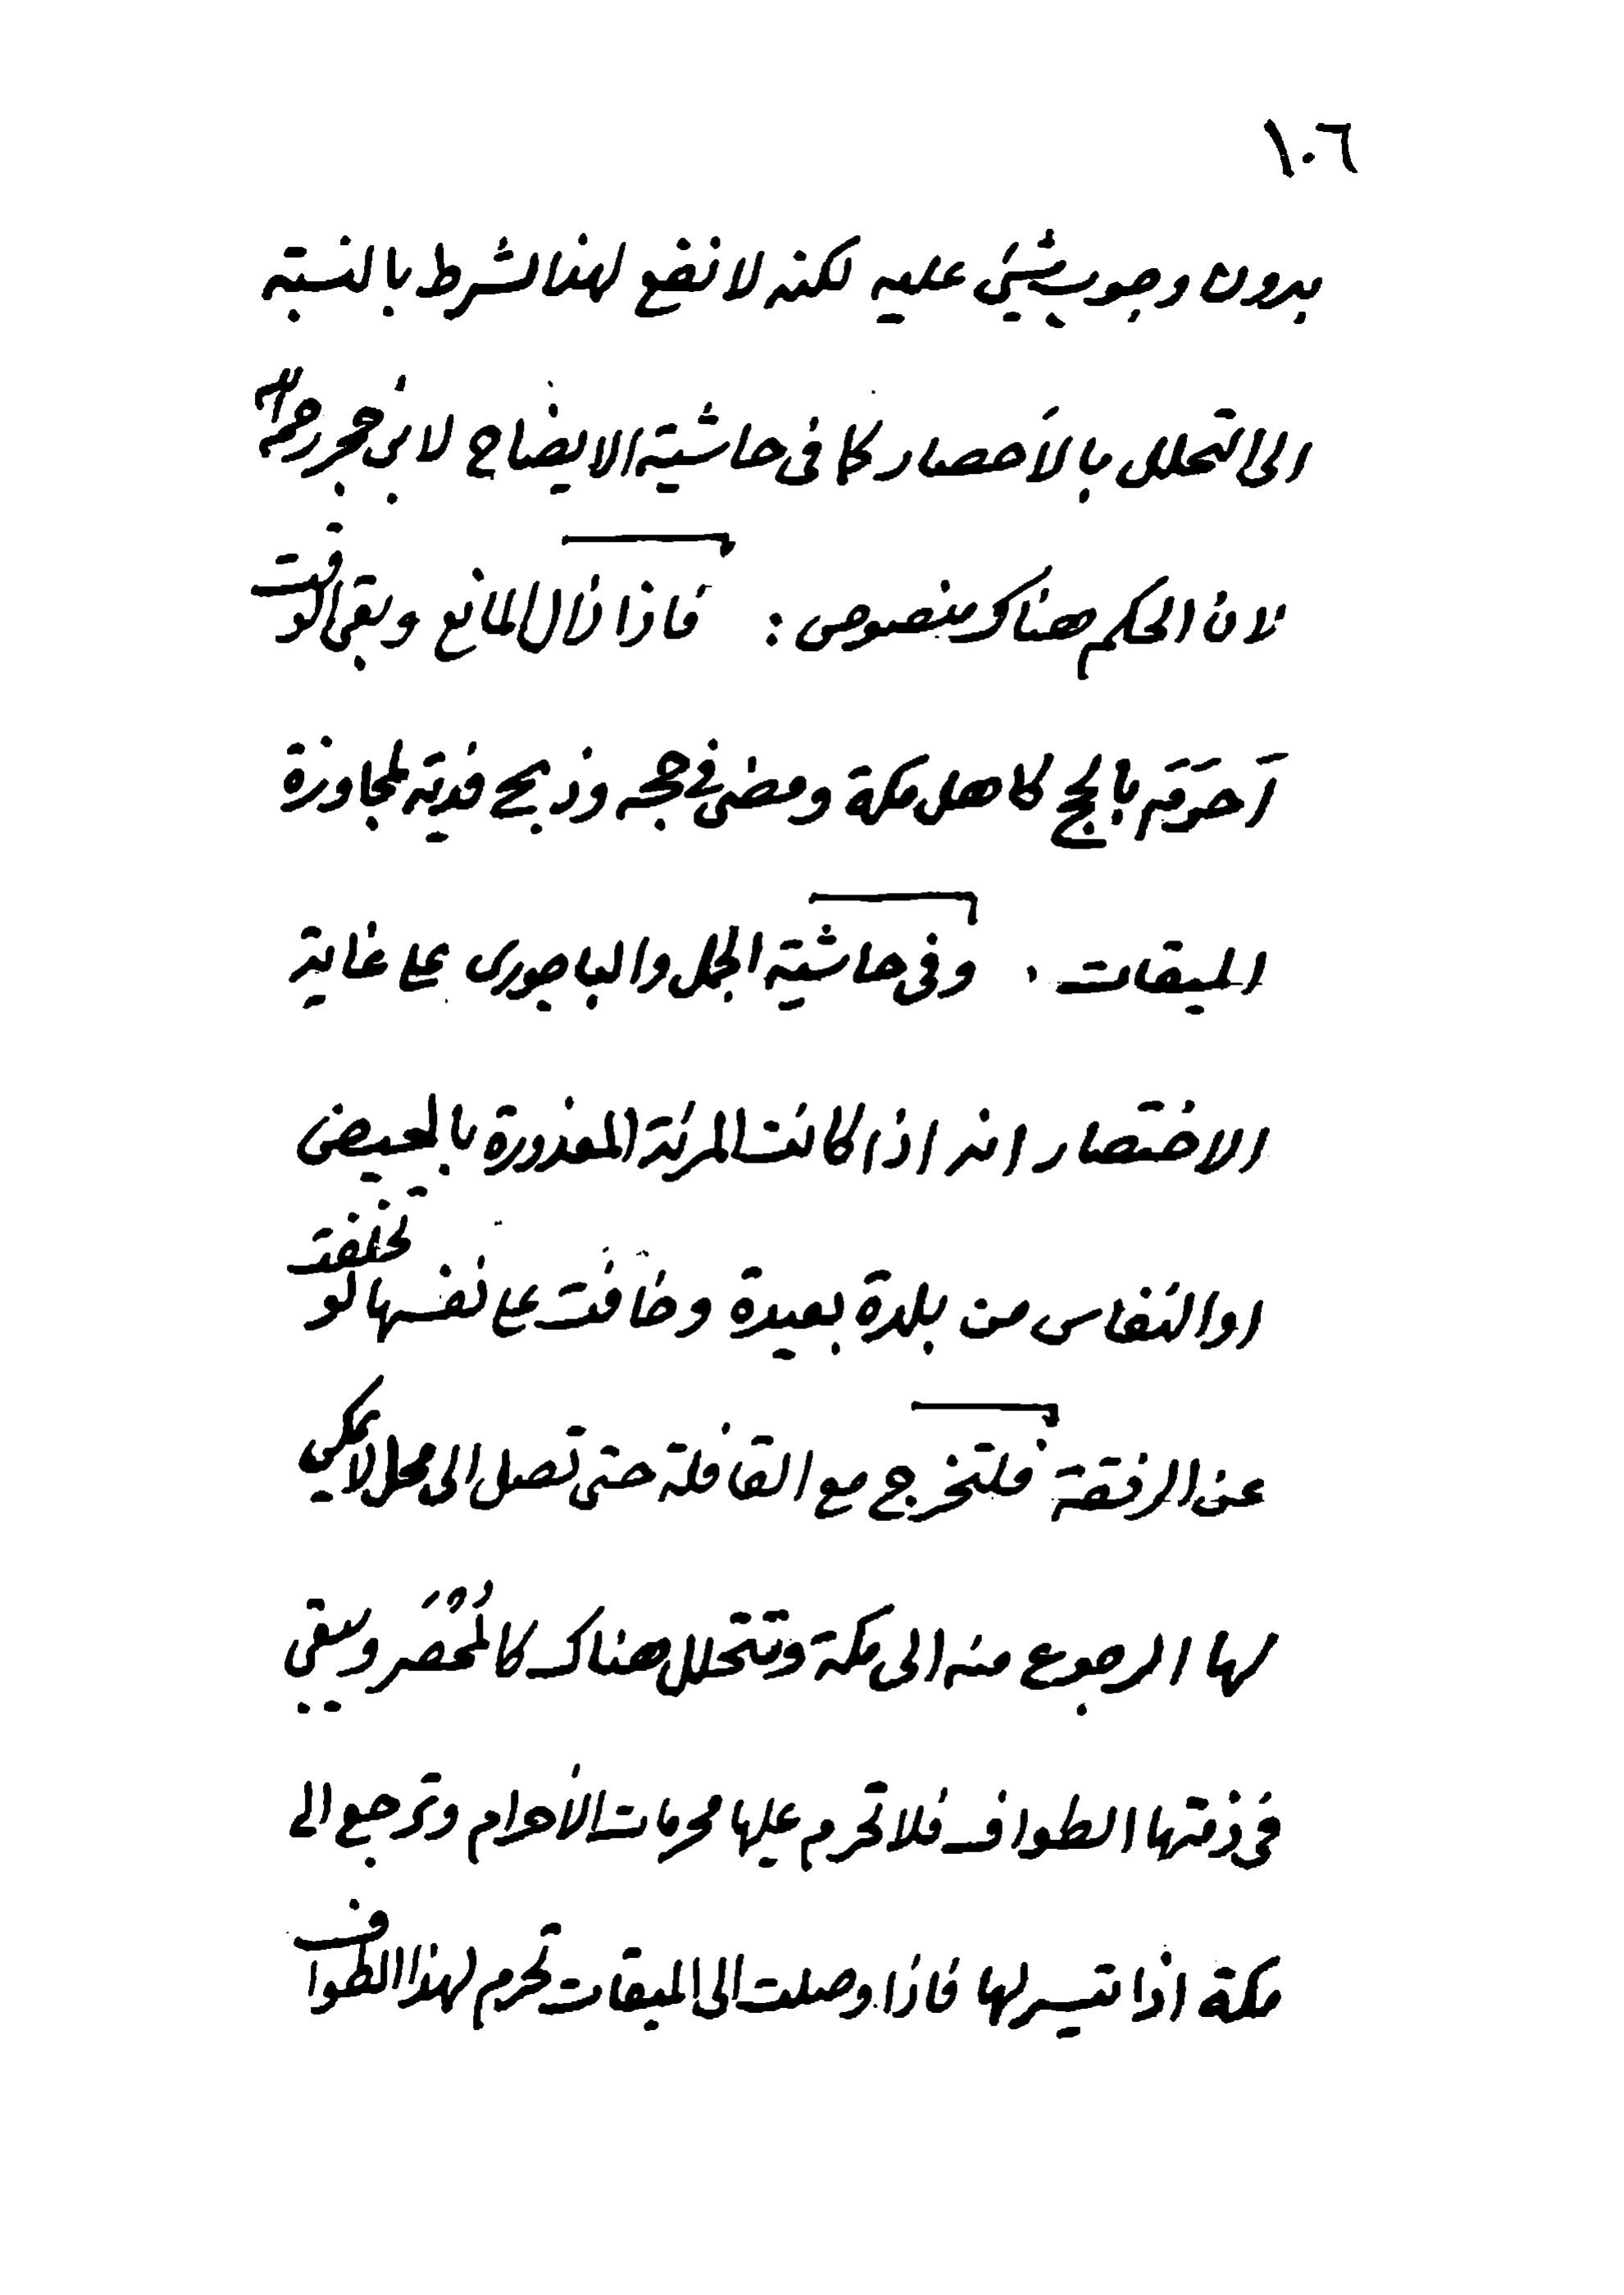 ١٠٦
بدون وجوب شيئ عليه لكنه لا نفع لهذا الشرط بالنسبة
الى التحلل بالأحصار كما فى حاشية الايضاح لابن حجر رحمه الله
لان الحكم هناك منصوص : فاذا زال المانع وبقى الوقت
اَحرَمَ بالحج كاهل مكة ومضى فى حجه وذبح فدية لمجاوزة
الميقات . وفى حاشية الجمل والباجورى على غاية
الاختصار انه اذا كانت المرئة المعذورة بالحيض
او النفاس من بلدة بعيدة وخافت على نفسها لو تخلفت
عن الرفقة فلتخرج مع القافلة حتى تصل الى محل لا يمكن
لها الرجوع منه الى مكة وتتحلل هناك كالمُحْصَر ويبقى
فى ذمتها الطواف فلا تحرم عليها محرمات الأحرام وترجع الى
مكة اذا تيسر لها فاذا وصلت الى الميقات تحرم لهذا الطواف